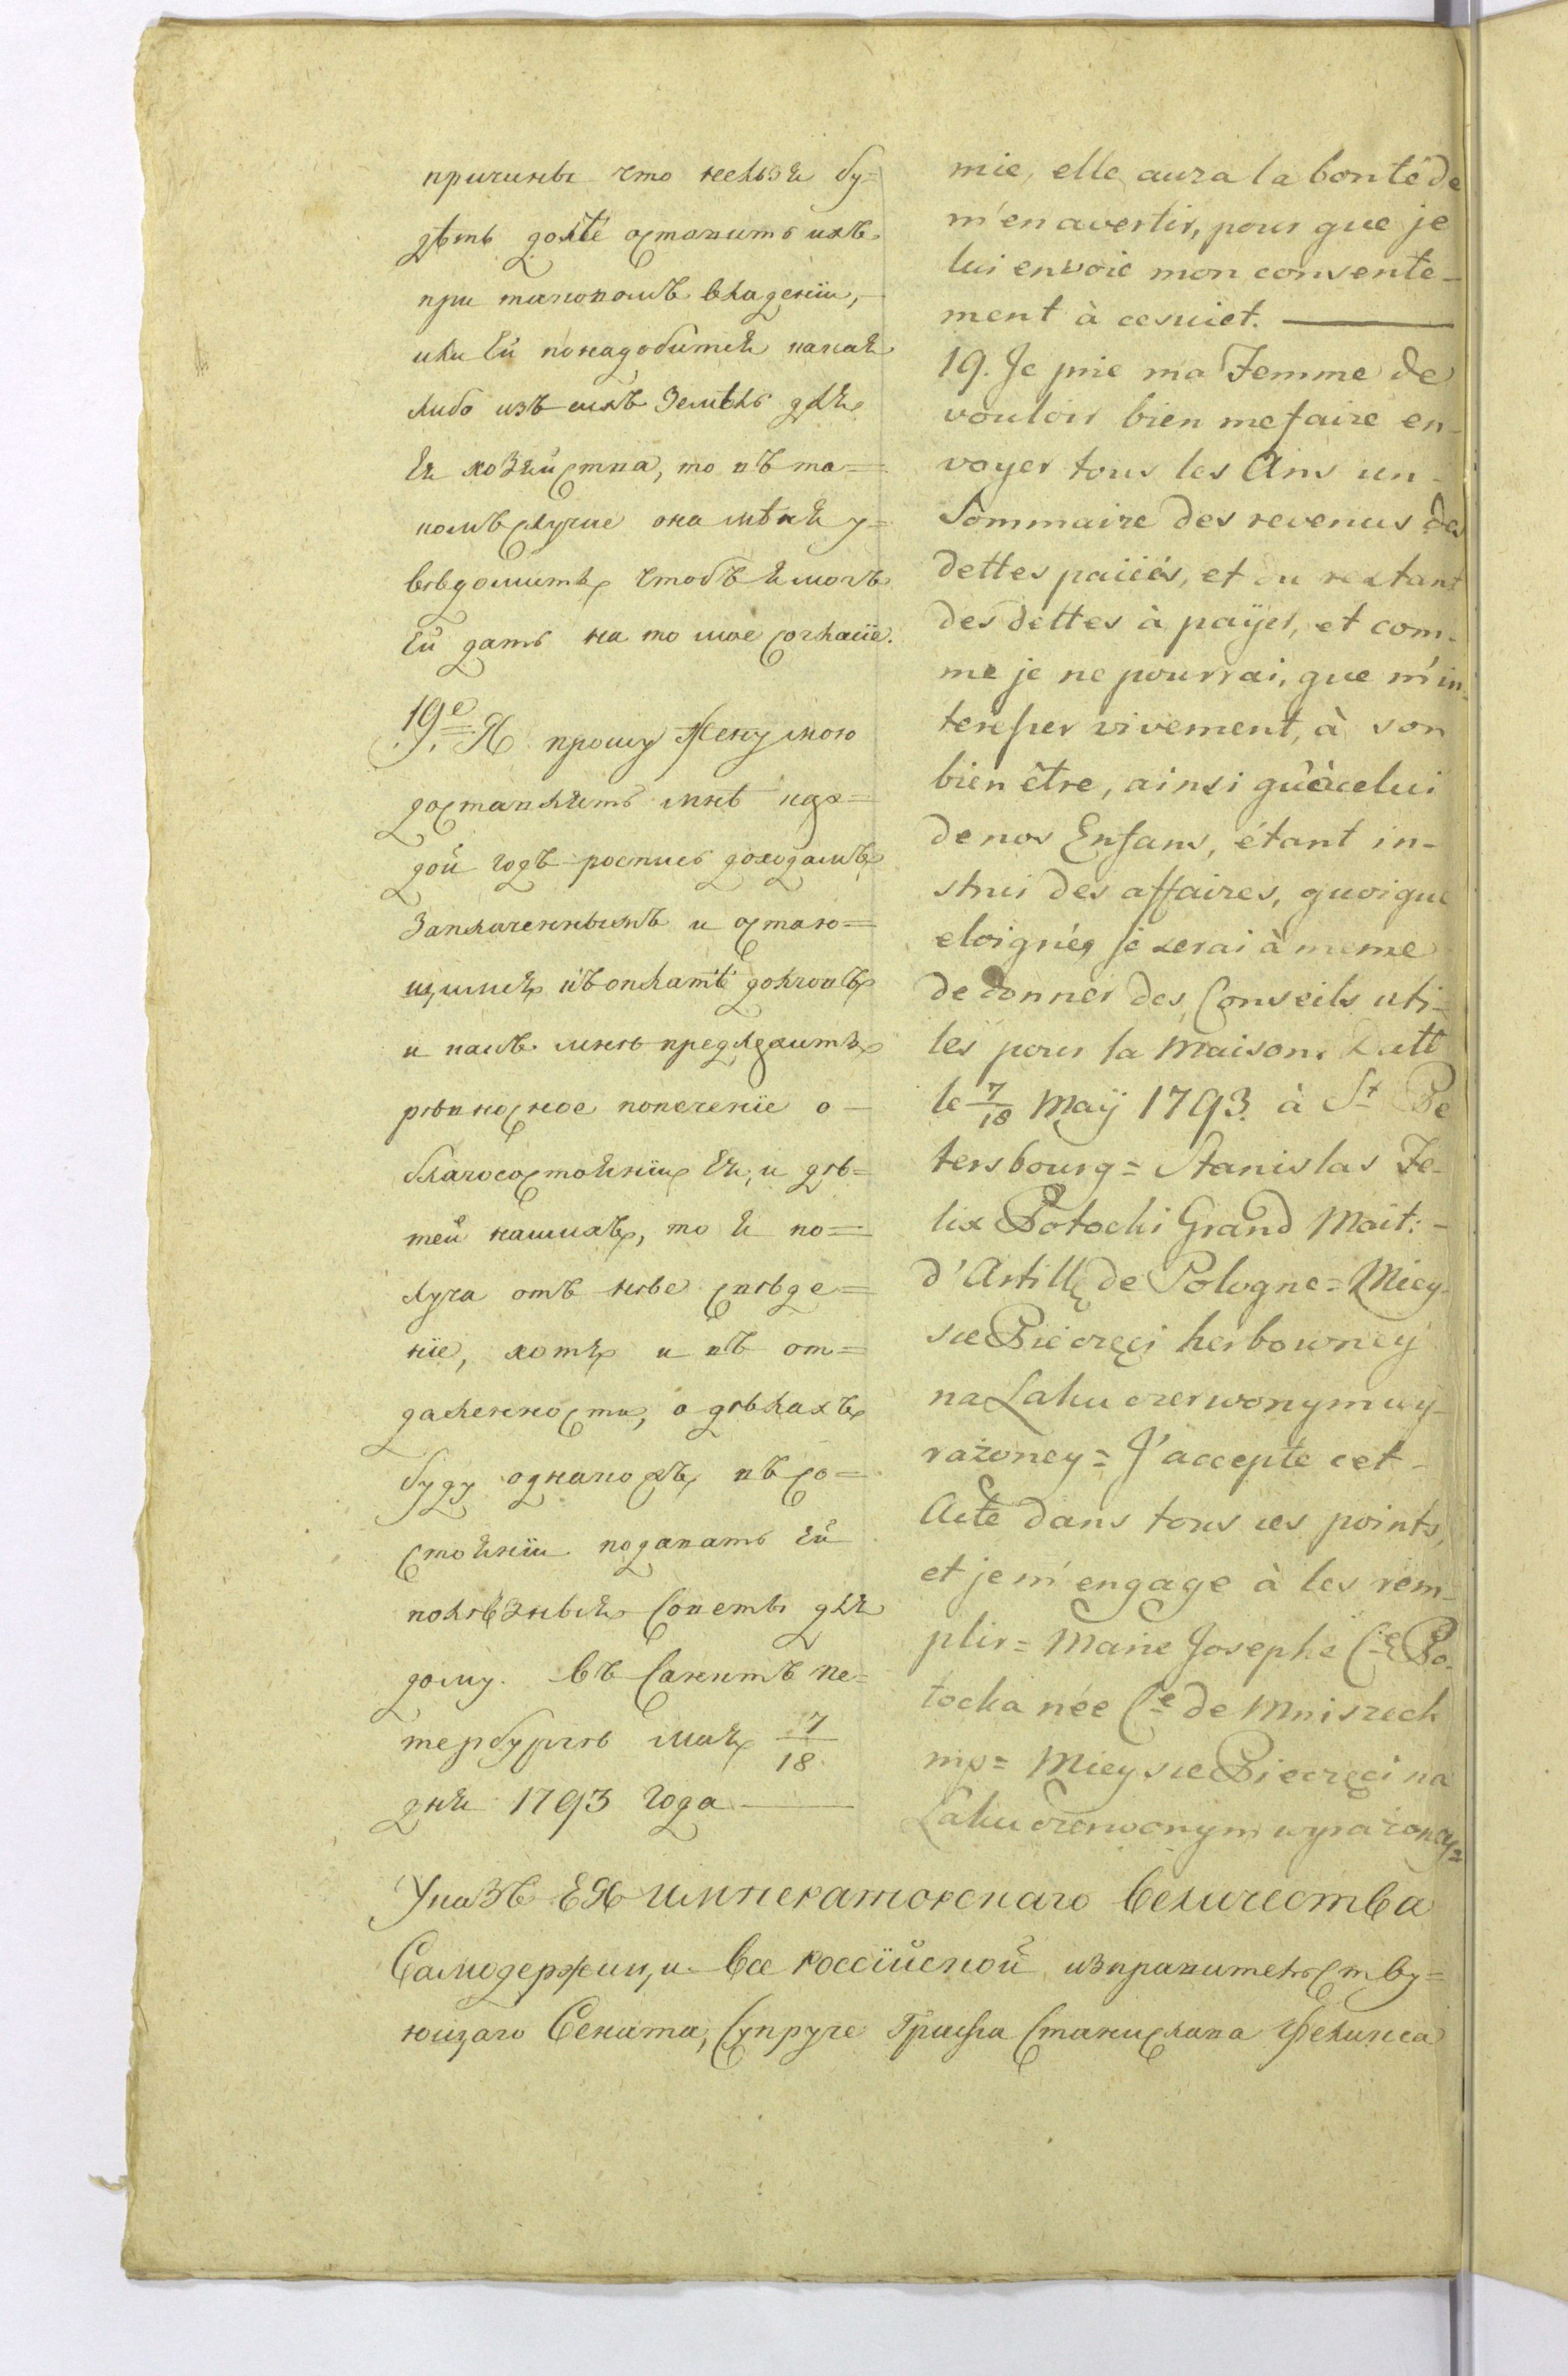 причины что нельзя бу=
дѣтъ долѣе оставить ихъ
при таковомъ владенiи,
или Ей понадобится какая
либо изъ сихъ Земѣль для
Ея хозяйства, то въ та=
комъ случие она мѣня у=
вѣдомитъ чтобъ я могъ
Ей дать на то мое согласiе.
19е. Я прошу Жену мою
доставлять мнѣ каж=
дой годъ роспись доходамъ
Заплаченнымъ и остаю=
щимся къ оплатѣ долговъ
и какъ мнѣ предлежитъ
рѣвносное попеченiе о
благосостоянiи Ея, и дѣ=
тей нашихъ, то я по=
луча отъ нѣе свѣде=
нiе, хотя и въ от=
даленности, о дѣлахъ
буду однакожъ въ со=
стоянiи подавать Ей
полѣзныя Советы для
дому. Въ Санктъ Пе=
тербургѣ мая 7/18
дня 1793 Года
mie, elle aura la bonté de
m'en avertir, pour que je
lui envoie mon consente-
ment à cesuiet.
19. Je prie ma Femme de
vouloir bien mefaire en-
voyer tous les Ans un-
Sommaire des revenus des
dettes paiiés, et du restant
des dettes à payer, et com-
me je ne pourrai, que m'in-
teresser vivement, à son
bien être, ainsi qu'àcelui
denos Enfans, étant in-
struis des affaires, quoique
eloignés je serai à meme
de donner des Conseils uti-
les pour la Maison. Datt
le 7/18 Maÿ 1793. à St Pe
tersbourg = Stanislas Fe-
lix Potocki Grand Mait:-
d'Artille de Pologne = Miey-
sce Pieczęci herbowney
na Laku czerwonym wy-
rażoney = J'accepte cet-
Acte dans tous ces points,
et je m'engage à les rem-
plir = Marie Josephe Cse Po-
tocka née Cse de Mniszech
mp = Mieysce Pieczęci na
Laku czerwonym wyrażoney=
Указъ ЕЯ ИМПЕРАТОРСКАГО Величества
Самодержицы Все Россiйской изправителству=
ющаго Сената, Супруге Графа Станислава Феликса